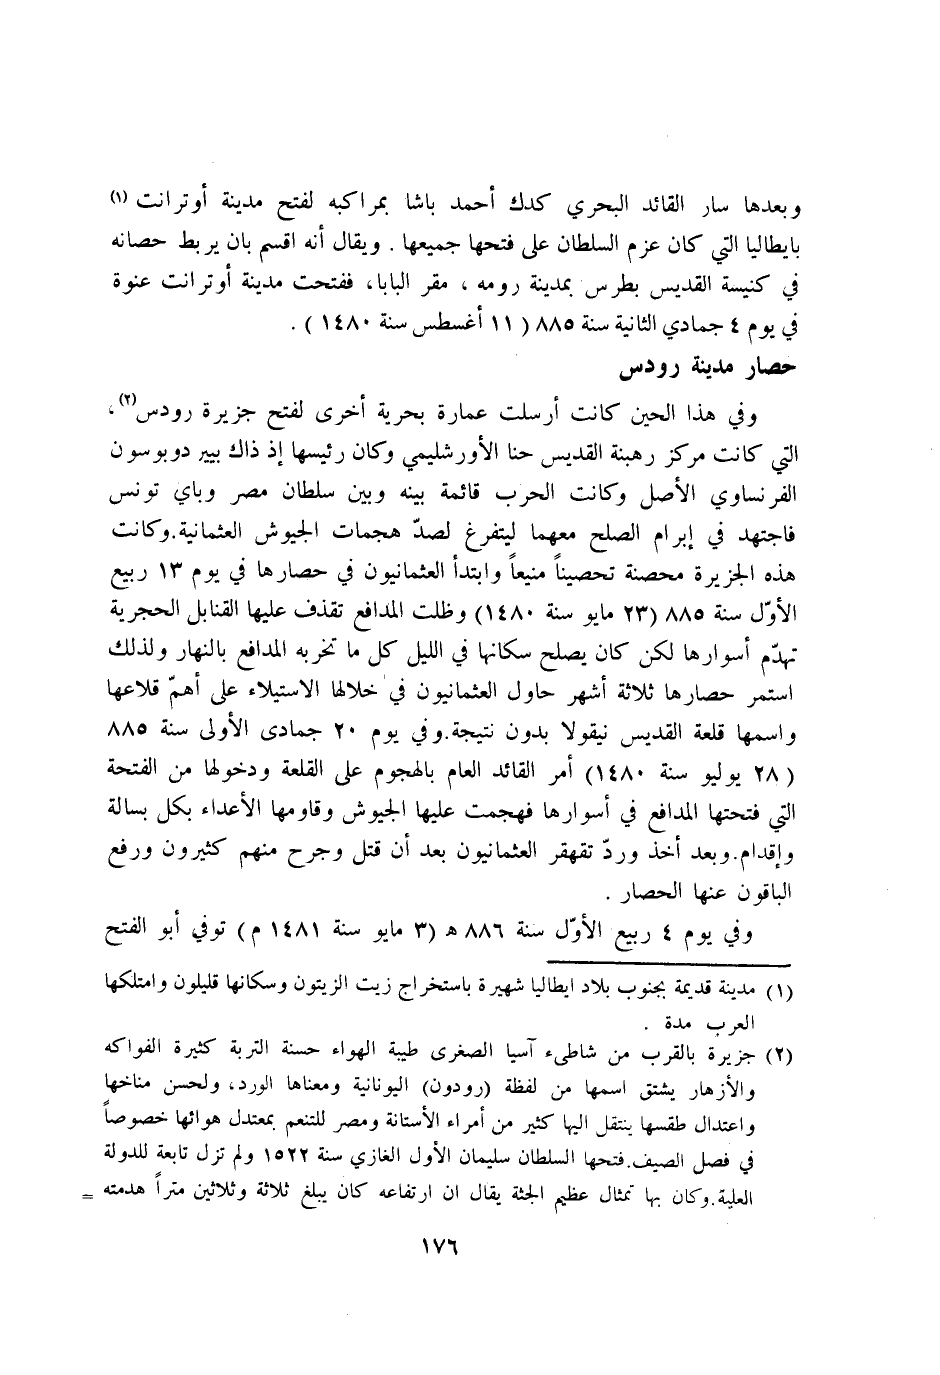 وبعدها سار القائد البحري كدك أحمد باشا بمراكبه لفتح مدينة أوترانت (١)
بايطاليا التي كان عزم السلطان على فتحها جميعها . ويقال أنه اقسم بان يربط حصانه
في كنيسة القديس بطرس بمدينة رومه ، مقر البابا، ففتحت مدينة أوترانت عنوة
في يوم ٤ جمادي الثانية سنة ٨٨٥ ( ١١ أغسطس سنة ١٤٨٠ ) .
حصار مدينة رودس
وفي هذا الحين كانت أرسلت عمارة بحرية أخرى لفتح جزيرة رودس(٢)،
التي كانت مركز رهبنة القديس حنا الأورشليمي وكان رئيسها إذ ذاك بيير دوبوسون
الفرنساوي الأصل وكانت الحرب قائمة بينه وبين سلطان مصر وباي تونس
فاجتهد في إبرام الصلح معهما ليتفرغ لصدّ هجمات الجيوش العثمانية.وكانت
هذه الجزيرة محصنة تحصيناً منيعاً وابتدأ العثمانيون في حصارها في يوم ١٣ ربيع
الأوّل سنة ٨٨٥ (٢٣ مايو سنة ١٤٨٠) وظلت المدافع تقذف عليها القنابل الحجرية
تهدّم أسوارها لكن كان يصلح سكانها في الليل كل ما تخربه المدافع بالنهار ولذلك
استمر حصارها ثلاثة أشهر حاول العثمانيون في خلالها الاستيلاء على أهمّ قلاعها
واسمها قلعة القديس نيقولا بدون نتيجة.وفي يوم ٢٠ جمادى الأولى سنة ٨٨٥
(٢٨ يوليو سنة ١٤٨٠) أمر القائد العام بالهجوم على القلعة ودخولها من الفتحة
التي فتحتها المدافع في أسوارها فهجمت عليها الجيوش وقاومها الأعداء بكل بسالة
وإقدام.وبعد أخذ وردّ تقهقر العثمانيون بعد أن قتل وجرح منهم كثيرون ورفع
الباقون عنها الحصار .
وفي يوم ٤ ربيع الأوّل سنة ٨٨٦ ه (٣ مايو سنة ١٤٨١ م) توفي أبو الفتح
(١) مدينة قديمة بجنوب بلاد ايطاليا شهيرة باستخراج زيت الزيتون وسكانها قليلون وامتلكها
العرب مدة .
(٢) جزيرة بالقرب من شاطىء آسيا الصغرى طيبة الهواء حسنة التربة كثيرة الفواكه
والأزهار يشتق اسمها من لفظة (رودون) اليونانية ومعناها الورد، ولحسن مناخها
واعتدال طقسها ينتقل اليها كثير من أمراء الأستانة ومصر للتنعم بمعتدل هوائها خصوصاً
في فصل الصيف.فتحها السلطان سليمان الأول الغازي سنة ١٥٢٢ ولم تزل تابعة للدولة
العلية.وكان بها تمثال عظيم الجثة يقال ان ارتفاعه كان يبلغ ثلاثة وثلاثين متراً هدمته =
١٧٦